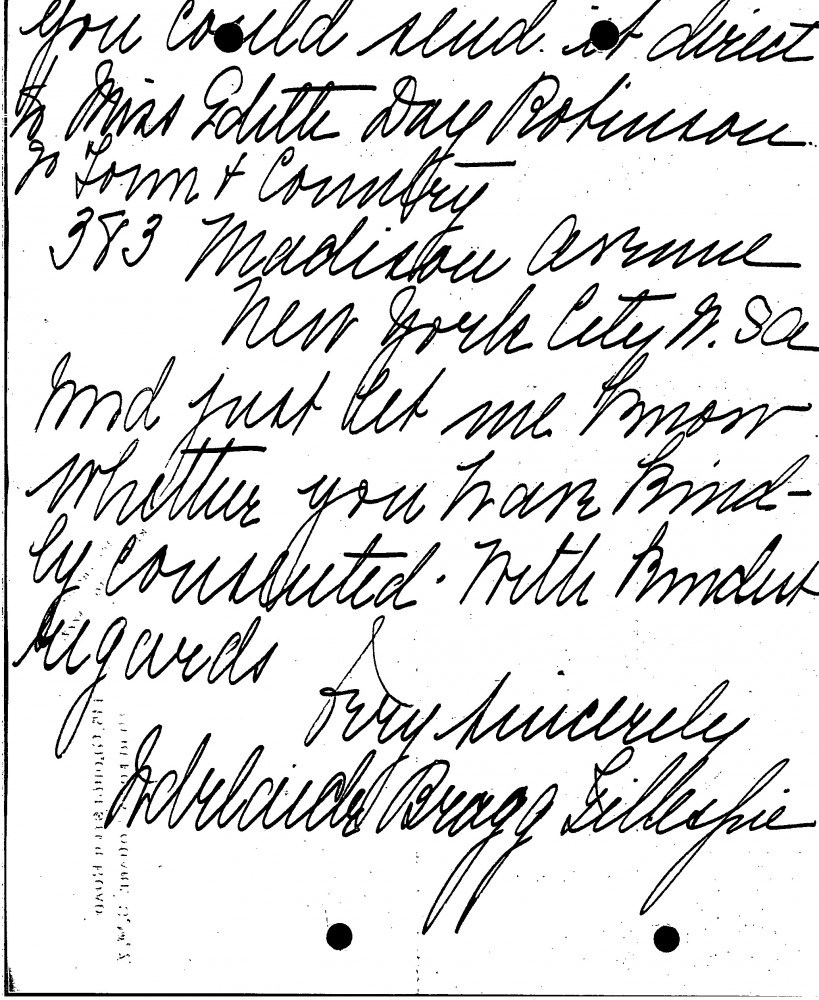 you could send it direct
to Miss Edith Day Robinson
c/o Town & Country
383 Madison Avenue
New York City U.S.A
And just let me know
whether you have kind-
ly consented. With kindest
regards
Very sincerely
Adelaide Bragg Gillespie